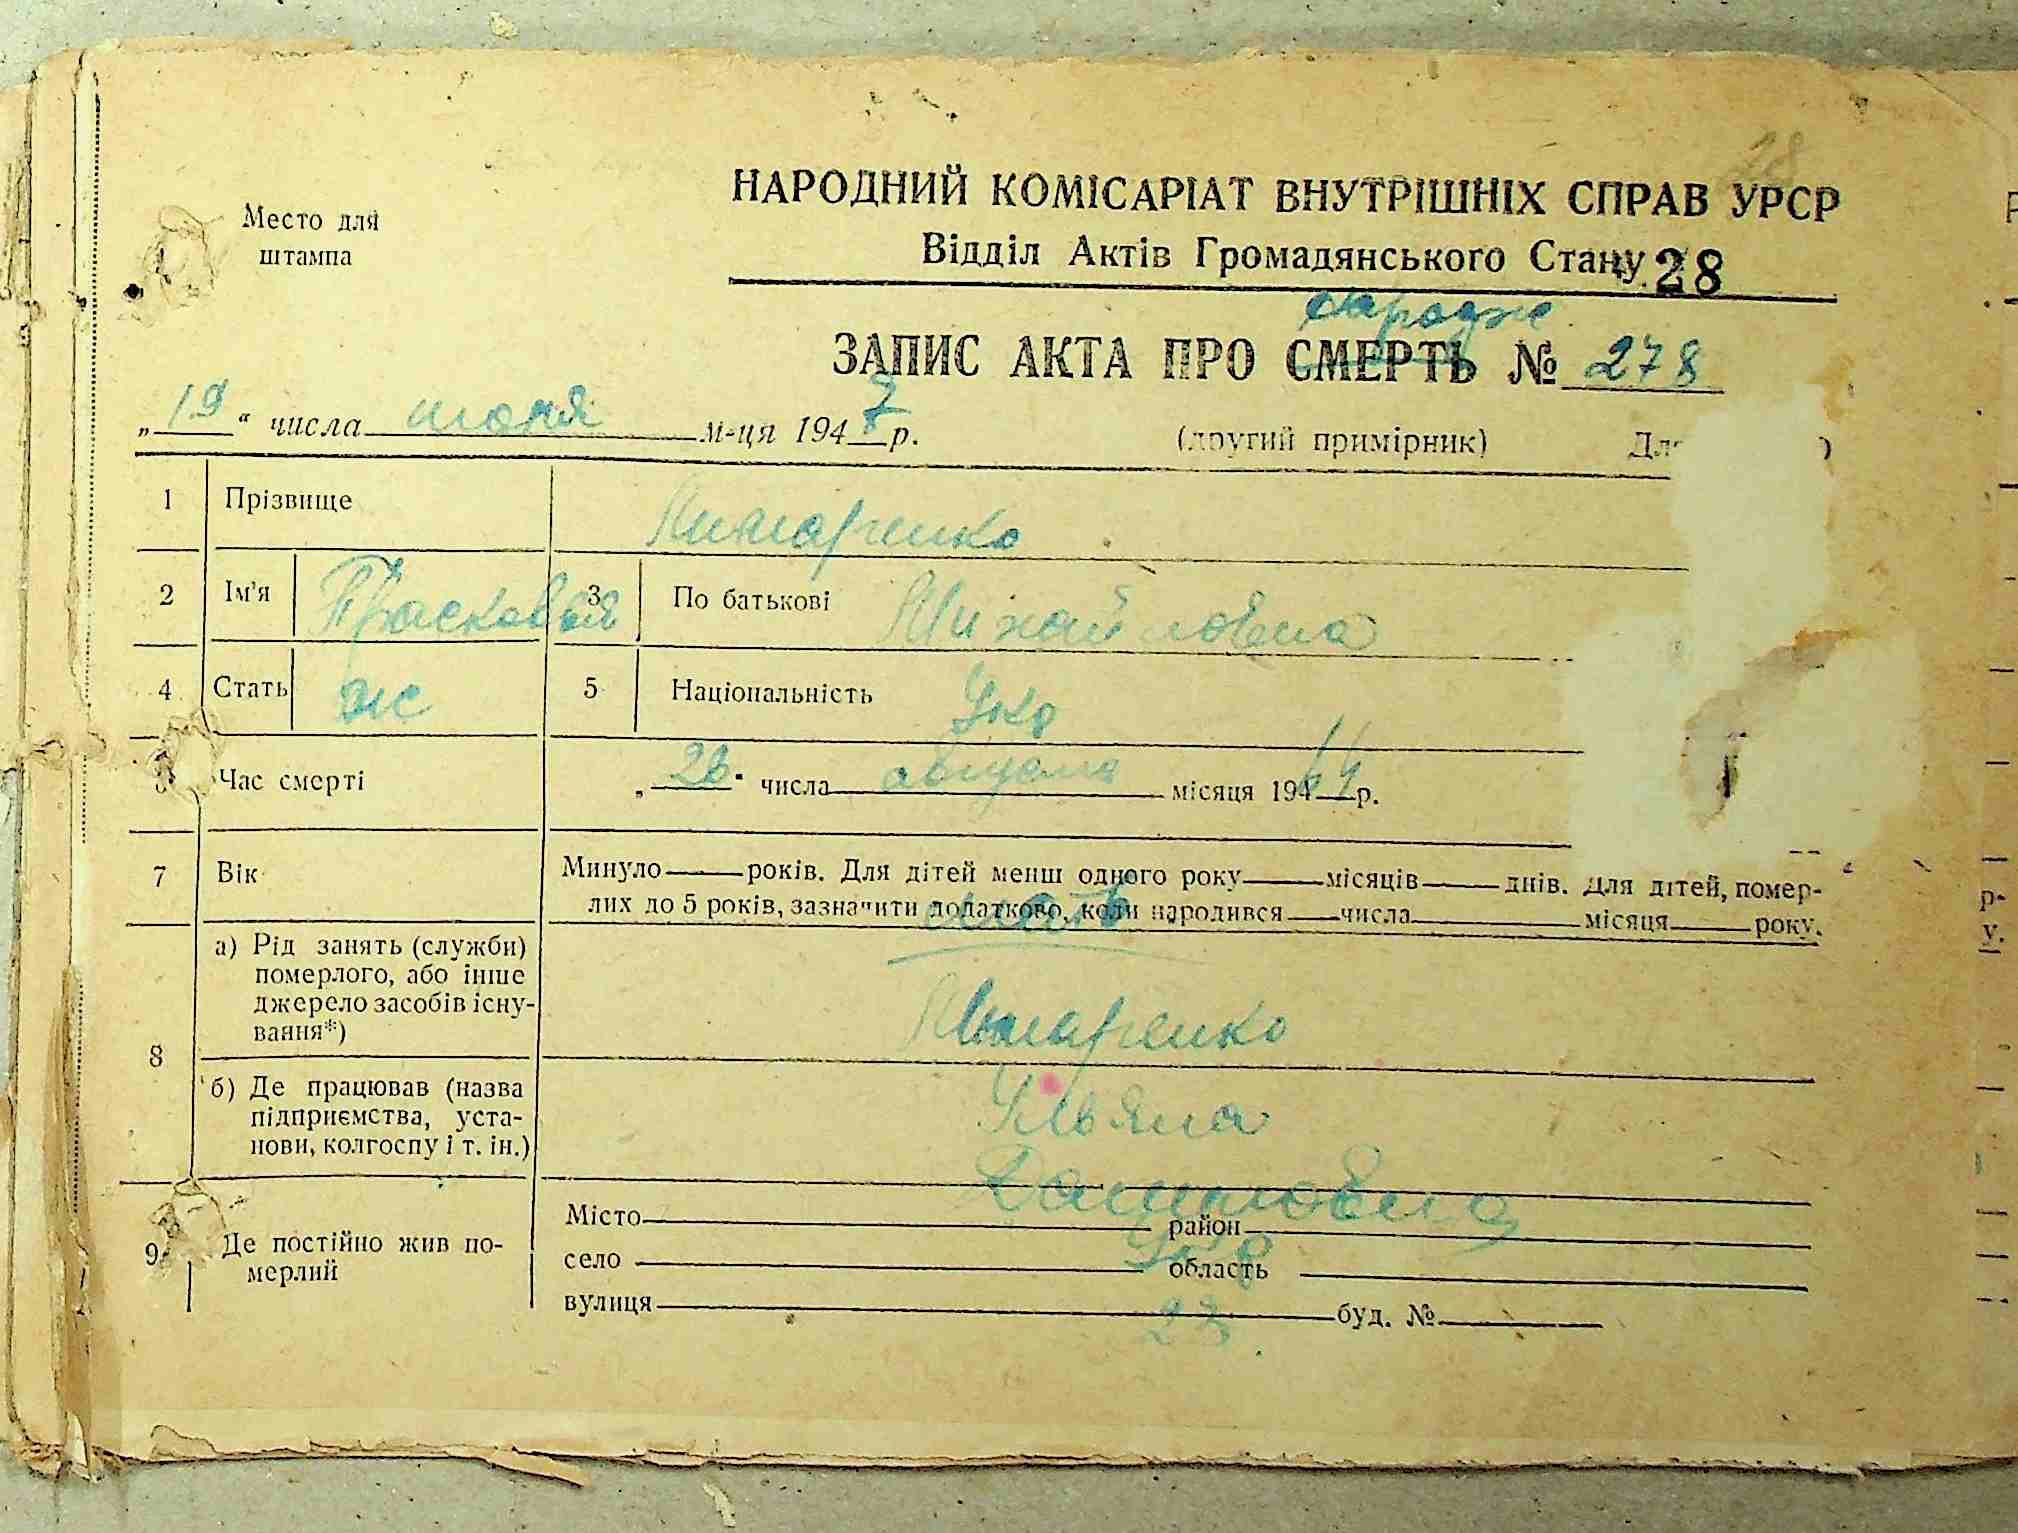 28
НАРОДНИЙ КОМІСАРІАТ ВНУТРІШНІХ СПРАВ УРСР
Место для
штампа
Відділ Актів Громадянського Стану 28
народж
ЗАПИС АКТА ПРО СМЕРТЬ № 278
„19“ числа июня м-ця 1947 р. (другий примірник)
1 Прізвище
2 Ім'я Прасковья 3 По батькові Михайловна
4 Стать ж 5 Національність Укр
Час смерті „26“ числа августа місяця 194 р.
7 Вік Минуло років. Для дітей менш одного року місяців днів. Для дітей, помер-
лих до 5 років, зазначити додатково, коли народився числа місяця року.
мать
8 а) Рід занять (службы) померлого, або інше джерело засобів існу-
вання*)
б) Де працював (назва
підприємства, уста-
нови, колгоспу і т. ін.)
Ульяна
Даниловна
9 Де постійно жив по-
мерлий
Місто район
Укр
село область
вулиця буд. №
23